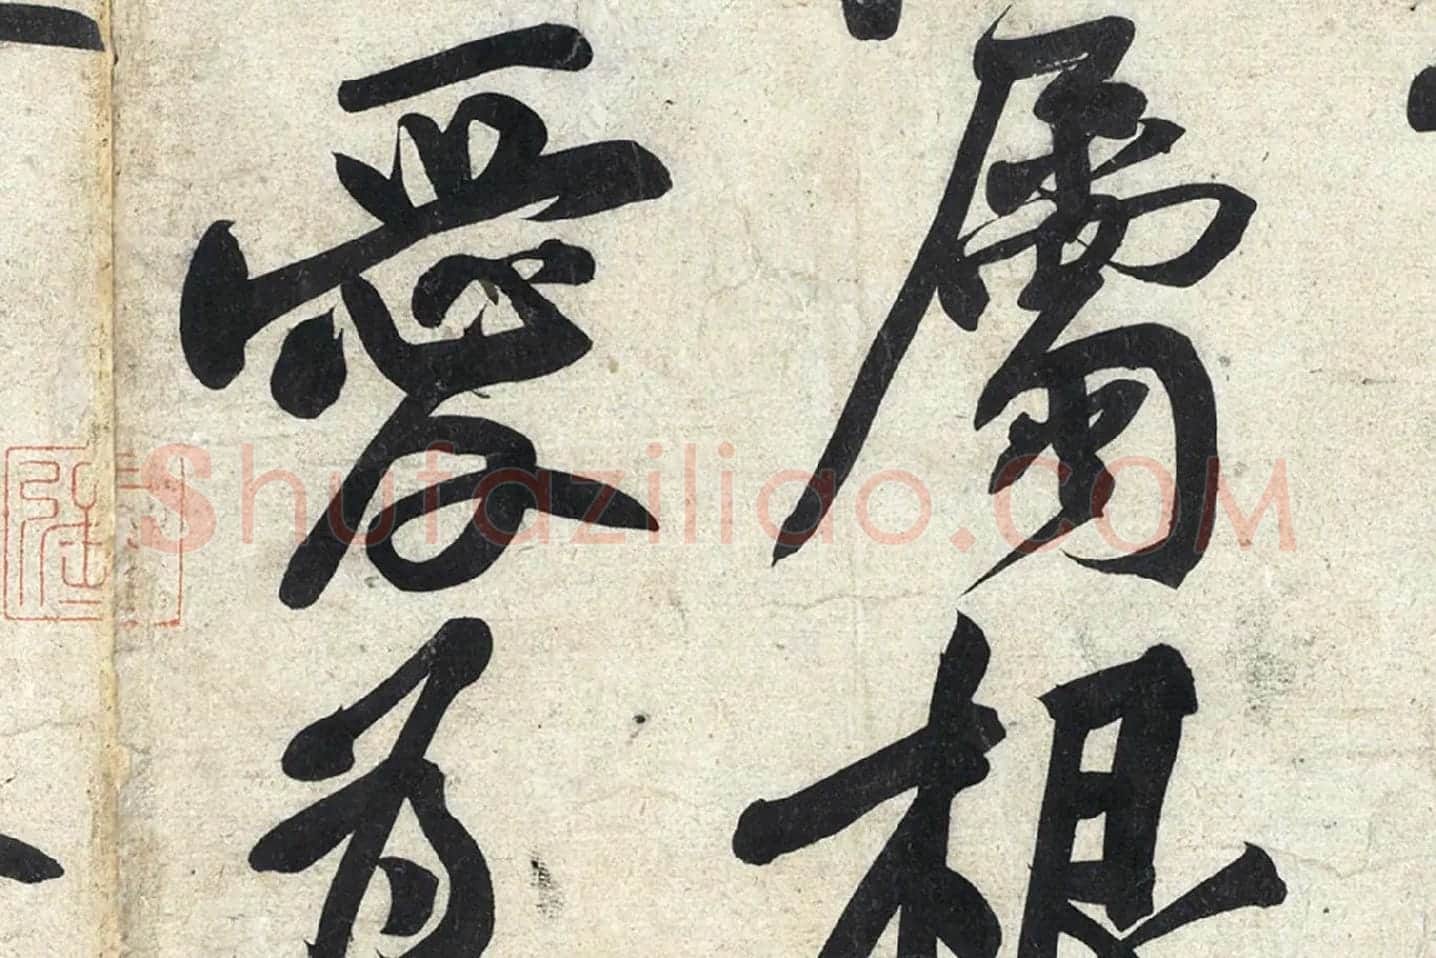 屬根
愛為
Shufaziliao.COM